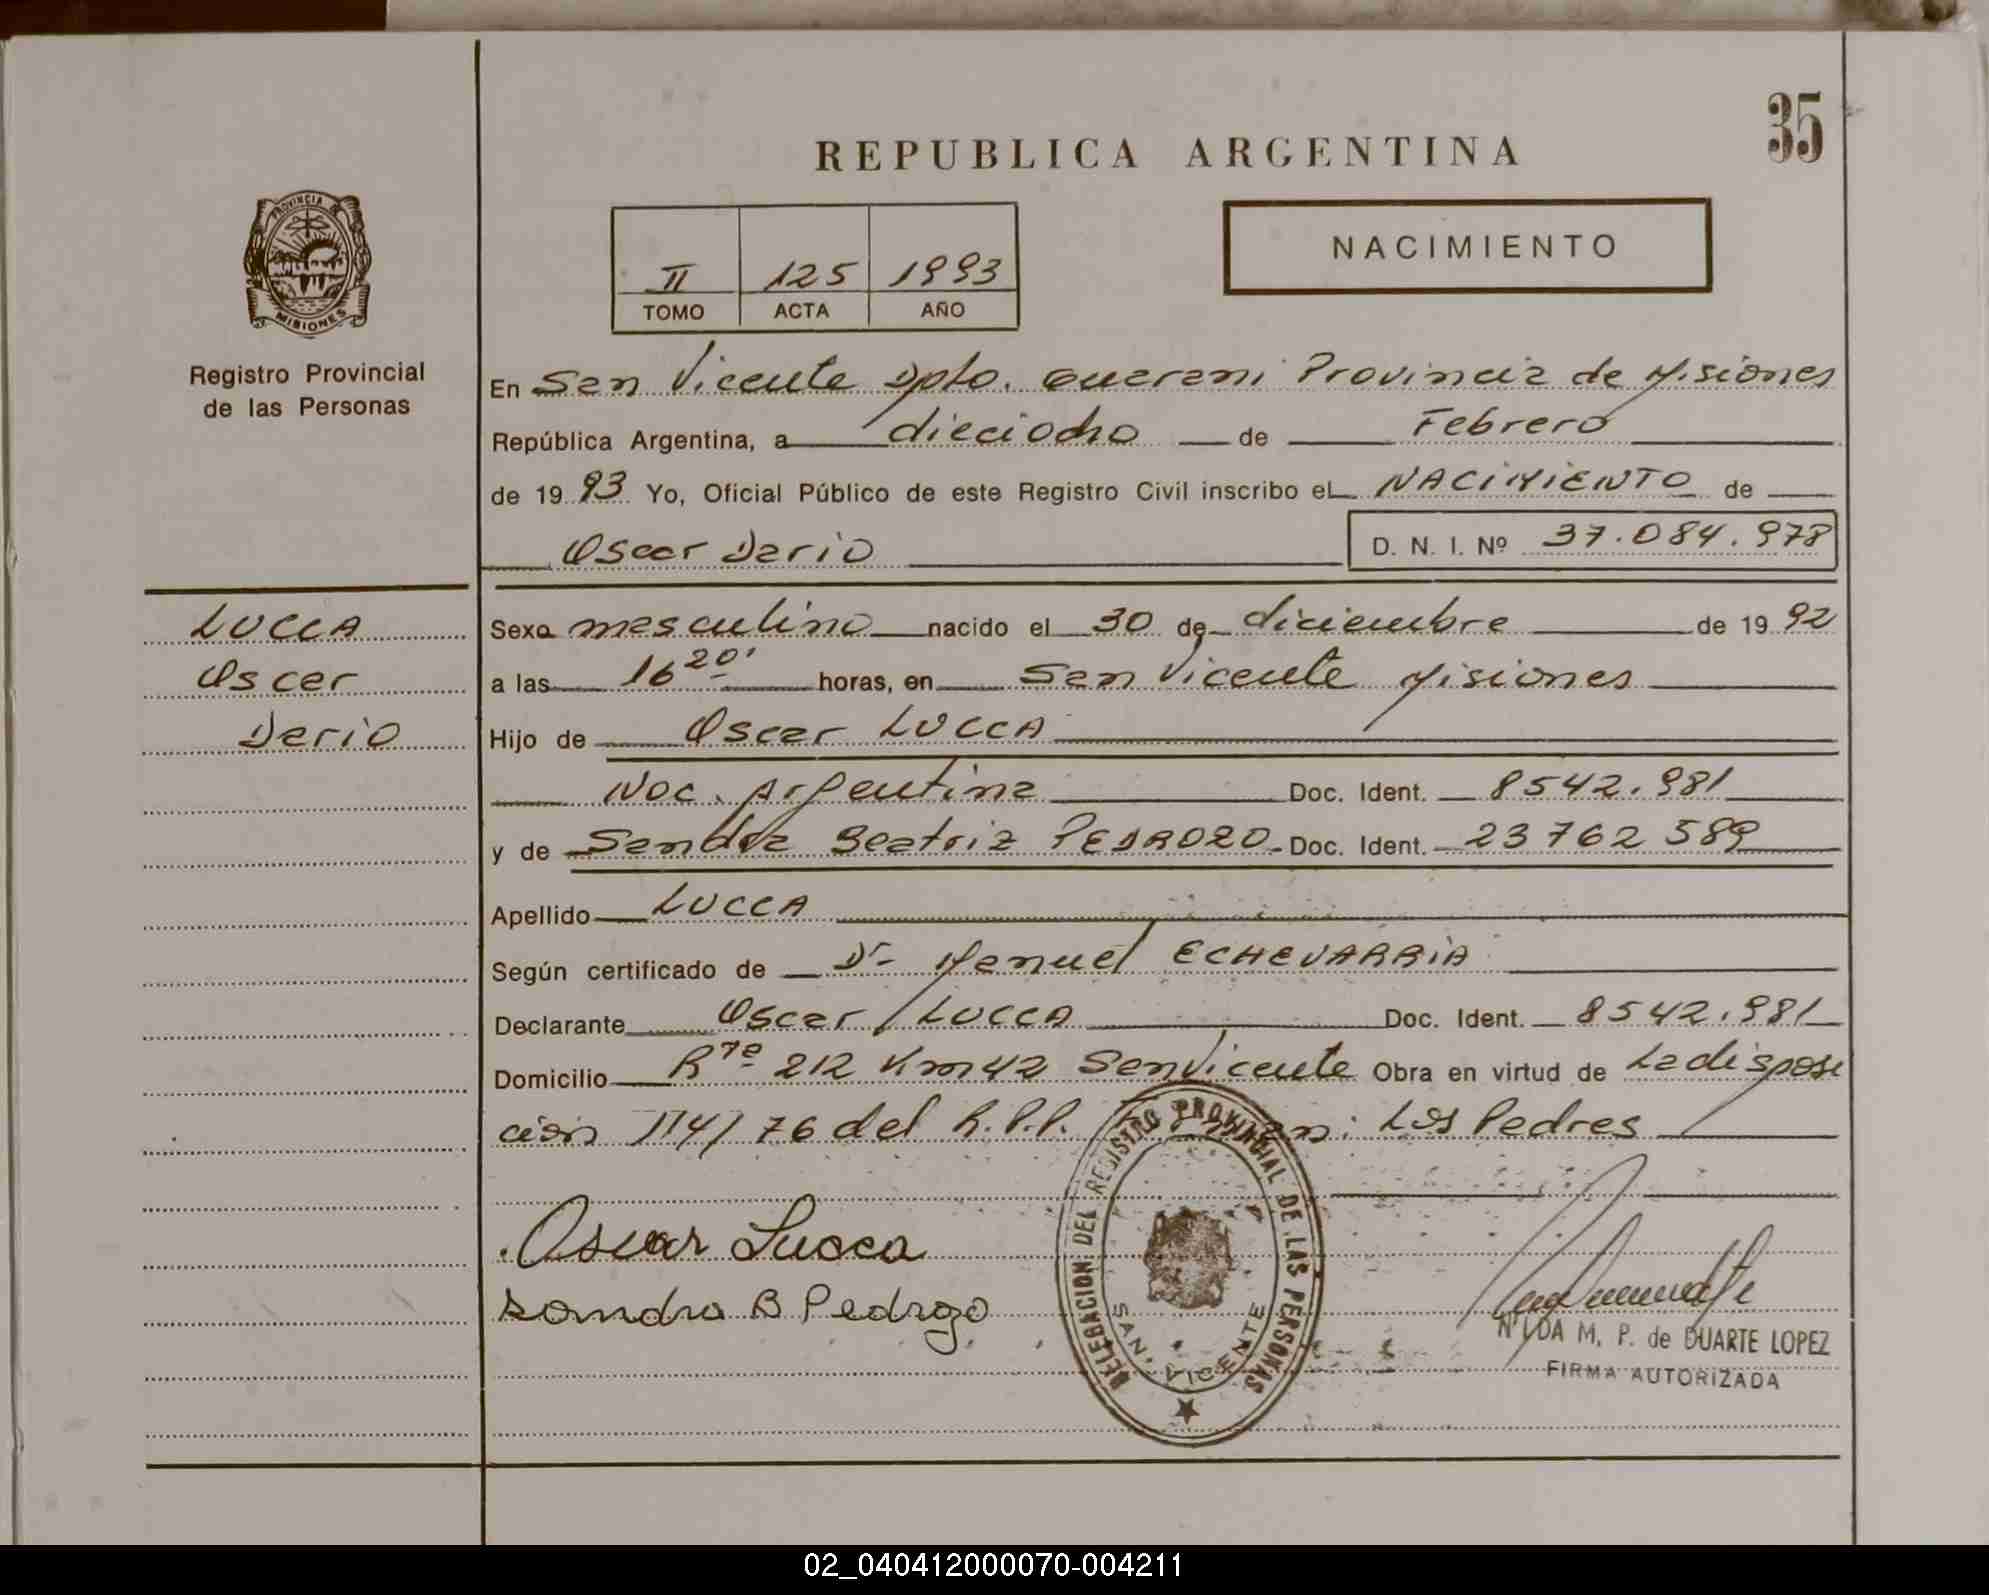 35
REPUBLICA ARGENTINA
PROVINCIA DE
MISIONES
Registro Provincial
de las Personas
II 125 1993
TOMO ACTA AÑO
NACIMIENTO
En San Vicente Dpto. Guarani Provincia de Misiones
República Argentina, a dieciocho de Febrero
de 1993 Yo, Oficial Público de este Registro Civil inscribo el NACIMIENTO de
Oscar Dario D. N. I. Nº 37.084.978
LUCCA
Oscar
Dario
Sexo masculino nacido el 30 de diciembre de 1992
a las 16 20' horas, en San Vicente Misiones
Hijo de Oscar LUCCA
Nac. Argentina Doc. Ident. 8542.981
y de Sandra Beatriz PEDROZO Doc. Ident. 23762589
Apellido LUCCA
Según certificado de Dr Manuel ECHEVARRIA
Declarante Oscar LUCCA Doc. Ident. 8542.981
Domicilio Rta 212 Km 42 San Vicente Obra en virtud de La disposi
ción 114/76 del R.P.P. Los Padres
Oscar Lucca
Sandra B Pedrozo
DELEGACION DEL REGISTRO PROVINCIAL DE LAS PERSONAS
SAN VICENTE
NILDA M. P. de DUARTE LOPEZ
FIRMA AUTORIZADA
02_040412000070-004211